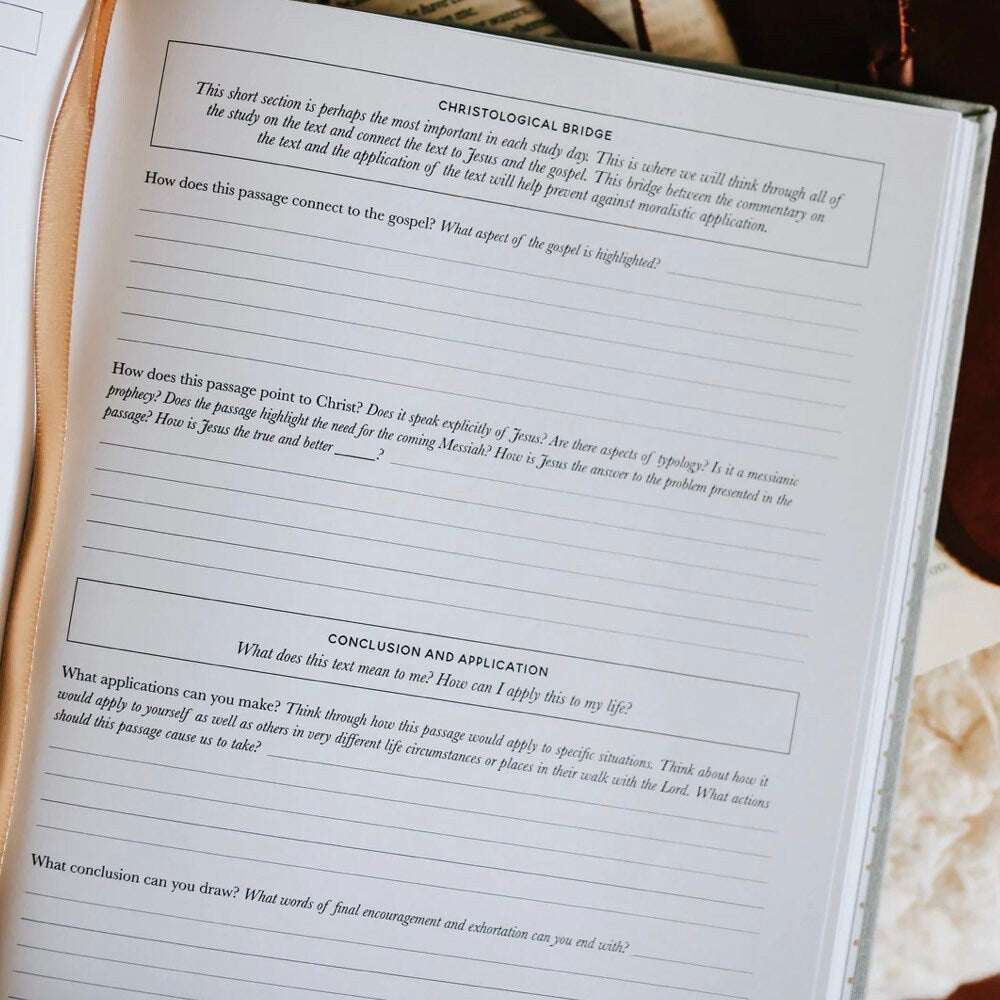 CHRISTOLOGICAL BRIDGE
This short section is perhaps the most important in each study day. This is where we will think through all of
the study on the text and connect the text to Jesus and the gospel. This bridge between the commentary on
the text and the application of the text will help prevent against moralistic application.
How does this passage connect to the gospel? What aspect of the gospel is highlighted?
How does this passage point to Christ? Does it speak explicitly of Jesus? Are there aspects of typology? Is it a messianic
prophecy? Does the passage highlight the need for the coming Messiah? How is Jesus the answer to the problem presented in the
passage? How is Jesus the true and better _____?
CONCLUSION AND APPLICATION
What does this text mean to me? How can I apply this to my life?
What applications can you make? Think through how this passage would apply to specific situations. Think about how it
would apply to yourself as well as others in very different life circumstances or places in their walk with the Lord. What actions
should this passage cause us to take?
What conclusion can you draw? What words of final encouragement and exhortation can you end with?